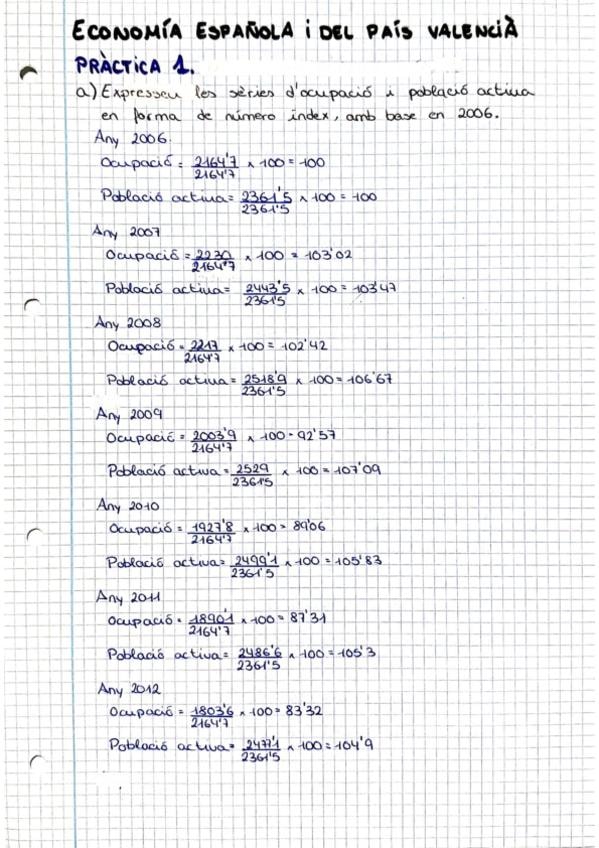 ECONOMÍA ESPAÑOLA i DEL PAÍS VALENCIÀ
PRÀCTICA 1.
a) Expresseu les sèries d'ocupació i població activa
en forma de número índex, amb base en 2006.
Any 2006.
Ocupació = 2164'7 / 2164'7 x 100 = 100
Població activa = 2361'5 / 2361'5 x 100 = 100
Any 2007
Ocupació = 2230 / 2164'7 x 100 = 103'02
Població activa = 2443'5 / 2361'5 x 100 = 103'47
Any 2008
Ocupació = 2217 / 2164'7 x 100 = 102'42
Població activa = 2518'9 / 2361'5 x 100 = 106'67
Any 2009
Ocupació = 2003'9 / 2164'7 x 100 = 92'57
Població activa = 2529 / 2361'5 x 100 = 107'09
Any 2010
Ocupació = 1927'8 / 2164'7 x 100 = 89'06
Població activa = 2499'1 / 2361'5 x 100 = 105'83
Any 2011
Ocupació = 1890'1 / 2164'7 x 100 = 87'31
Població activa = 2486'6 / 2361'5 x 100 = 105'3
Any 2012
Ocupació = 1803'6 / 2164'7 x 100 = 83'32
Població activa = 2477'1 / 2361'5 x 100 = 104'9